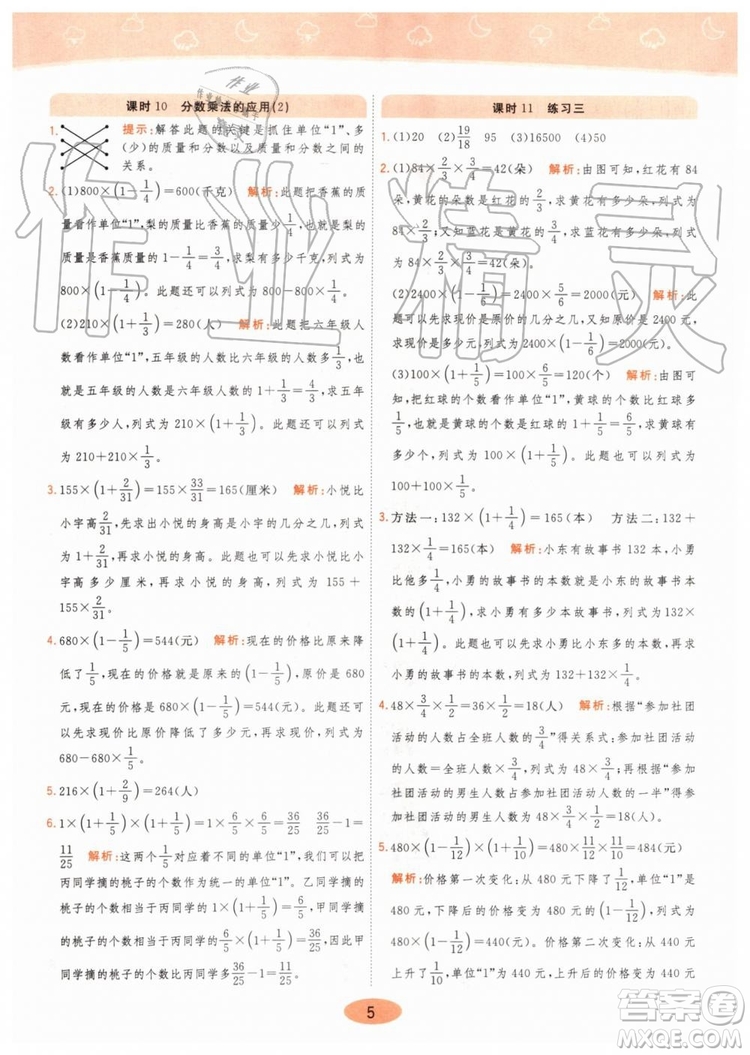 课时10 分数乘法的应用(2)
1. 提示:解答此题的关键是抓住单位“1”、多
(少)的质量和单位“1”的质量和分数之间的
关系。
2. (1)800×(1-1/4)=600(千克) 解析:此题把香蕉的质
量看作单位“1”,梨的质量比香蕉的质量少1/4,就是梨的
质量是香蕉质量的1-1/4=3/4,求梨有多少千克,列式为
800×(1-1/4)。此题还可以列式为800-800×1/4。
(2)210×(1+1/3)=280(人) 解析:此题把六年级人
数看作单位“1”,五年级的人数比六年级的人数多1/3,也
就是五年级的人数是六年级人数的1+1/3=4/3,求五年
级的人数,列式为210×(1+1/3)。此题还可以列式为
210+210×1/3。
3. 155×(1+2/31)=155×33/31=165(厘米) 解析:小悦比
小宇高2/31,也就是小悦的身高是小宇的身高的
(1+2/31),再求小悦的身高,也可以先求出小悦比
小宇高多少厘米,再求小悦的身高,列式为155+
155×2/31。
4. 680×(1-1/5)=544(元) 解析:现在的价格比原来降
低了1/5,现在的价格就是原来的(1-1/5),原价是680
元,现在的价格是680×(1-1/5)=544(元)。也可以
先求现价比原价少多少元,再求现价,列式为
680-680×1/5。
5. 216×(1+2/9)=264(人)
6. 1×(1+1/5)×(1+1/5)=1×6/5×6/5=36/25 36/25-1=
11/25 解析:这两个分数对应着不同的单位“1”,我们可以把
丙同学摘的桃子的个数作为统一的单位“1”。乙同学摘
的桃子的个数相当于丙同学的(1+1/5),甲同学摘的
桃子的个数相当于丙同学的36/25,所以甲同学比丙
同学摘的桃子的个数多36/25-1=11/25。
课时11 练习三
1. (1)20 (2)19/18 95 (3)16500 (4)50
2. (1)84×2/3×3/4=42(朵) 解析:由图可知,红花有84
朵,黄花的朵数是红花的2/3,求黄花有多少朵,列式为
84×2/3,又知蓝花是黄花的3/4,求蓝花有多少朵,列式
为84×2/3×3/4=42(朵)。
(2)2400×(1-1/6)=2400×5/6=2000(元) 解析:此
题可以先求现价是原价的几分之几,又知原价是2400元,
求现价是多少元,列式为2400×(1-1/6)=2000(元)。
(3)100×(1+1/5)=100×6/5=120(个) 解析:由图可
知,把红球的个数看作单位“1”,黄球的个数比红球多
1/5,也就是黄球的个数是红球的1+1/5=6/5,求黄球有
多少个,列式为100×(1+1/5)。此题还可以列式为
100+100×1/5。
3. 方法一:132×(1+1/4)=165(本) 方法二:132+
132×1/4=165(本) 解析:小东有故事书132本,小勇
比他多1/4,小勇的故事书的本数就是小东的故事书
本数的(1+1/4),再求小勇故事书的本数,列式为
132×(1+1/4);也可以先求小勇比小东多的本数,再求
小勇的故事书的本数,列式为132+132×1/4。
4. 48×3/4×1/2=36×1/2=18(人) 解析:根据“参加社团
活动的人数占全班人数的3/4”写出关系式:参加社团
活动的人数=全班人数×3/4,列式为48×3/4,所以参加
社团活动的男生人数为48×3/4×1/2=18(人)。
5. 480×(1-1/12)×(1+1/10)=480×11/12×11/10=484(元)
解析:价格第一次变化:从480元下降了1/12,单位“1”是
480元,下降后的价格是480元的(1-1/12),列式为
480×(1-1/12)=440(元)。价格第二次变化:从440元
上升了1/10,单位“1”是440元,上升后的价格是440元
5
作业精灵
答案圈
MXQE.COM